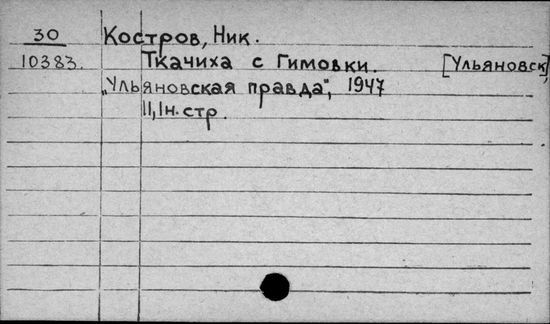 30 Костров, Ник.
10383. Ткачиха с Гимовки. [Ульяновск]
„Ульяновская правда", 1947
II, Iн. стр.